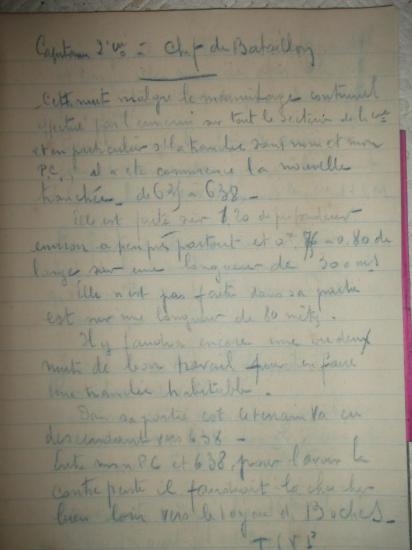 Capitaine 2e Cie = Chef de Bataillon
Cette nuit malgré le marmitage continuel
effectué par l'ennemi sur tout le secteur de la Cie
et en particulier s/ la tranchée sans nom et mon
P.C., il a été commencé la nouvelle
tranchée de 625 à 638 -
Elle est faite sur 1.20 de profondeur
environ à peu près partout et 0m 75 à 0.80 de
large sur une longueur de 300 mts
Elle n'est pas faite dans sa partie
est sur une longueur de 80 mèts.
Il y faudra encore une ou deux
nuits de bon travail pour en faire
une tranchée habitable.
Dans sa partie est le terrain va en
descendant vers 638 -
Entre mon PC et 638, pour l'avoir la
contre pente il faudrait la chercher
bien loin vers le boyau d Boches.